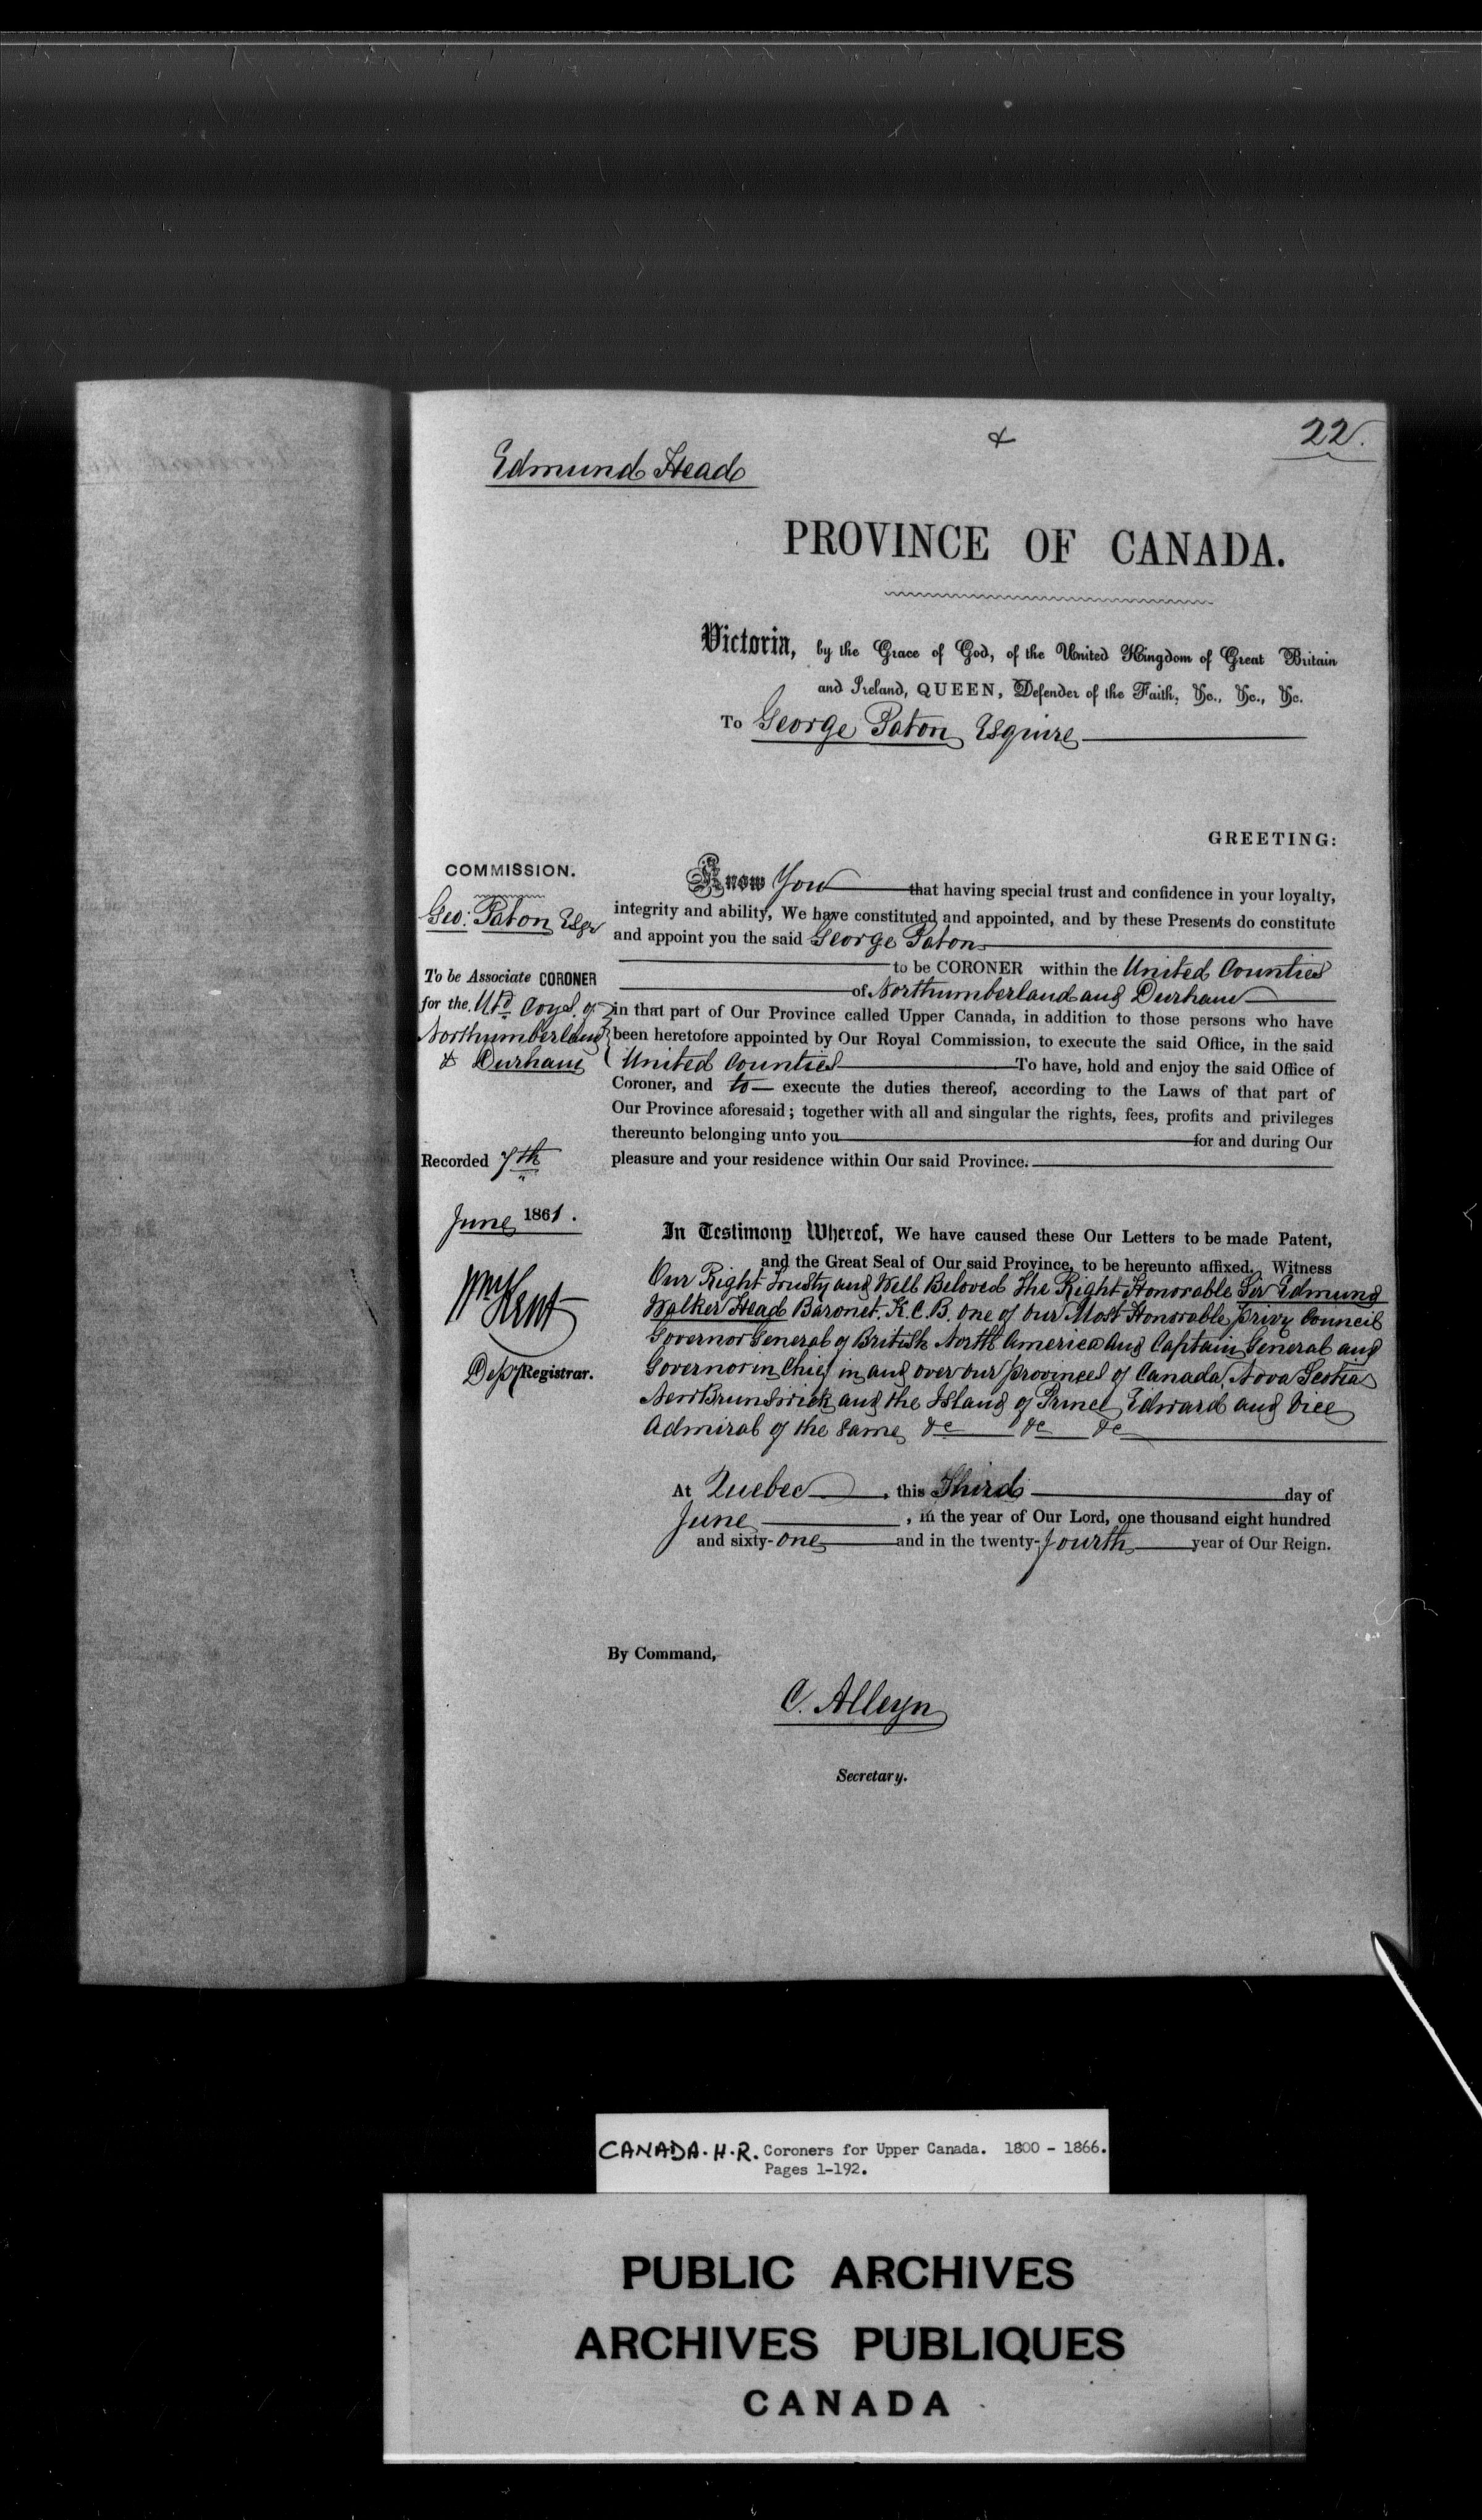 22.
Edmund Head
PROVINCE OF CANADA.
Victoria, by the Grace of God, of the United Kingdom of Great Britain
and Ireland, QUEEN, Defender of the Faith, &c., &c., &c.
To George Paton Esquire
GREETING:
COMMISSION.
Geo: Paton Esqr
To be Associate CORONER
for the Utd Coys. of
Northumberland
& Durham
Recorded 7th
June 1861.
Wm Kent
Depy Registrar.
Know You that having special trust and confidence in your loyalty,
integrity and ability, We have constituted and appointed, and by these Presents do constitute
and appoint you the said George Paton
to be CORONER within the United Counties
of Northumberland and Durham
in that part of Our Province called Upper Canada, in addition to those persons who have
been heretofore appointed by Our Royal Commission, to execute the said Office, in the said
United Counties To have, hold and enjoy the said Office of
Coroner, and to execute the duties thereof, according to the Laws of that part of
Our Province aforesaid; together with all and singular the rights, fees, profits and privileges
thereunto belonging unto you for and during Our
pleasure and your residence within Our said Province.
In Testimony Whereof, We have caused these Our Letters to be made Patent,
and the Great Seal of Our said Province, to be hereunto affixed. Witness
Our Right Trusty and Well Beloved The Right Honorable Sir Edmund
Walker Head Baronet. K.C.B. One of Our Most Honorable privy Council
Governor General of British North America and Captain General and
Governor in Chief in and over our provinces of Canada, Nova Scotia
New Brunswick and the Island of Prince Edward and Vice
Admiral of the same &c &c &c
At Quebec, this Third day of
June, in the year of Our Lord, one thousand eight hundred
and sixty-one and in the twenty-fourth year of Our Reign.
By Command,
C. Alleyn
Secretary.
CANADA. H.R. Coroners for Upper Canada. 1800 - 1866.
Pages 1-192.
PUBLIC ARCHIVES
ARCHIVES PUBLIQUES
CANADA